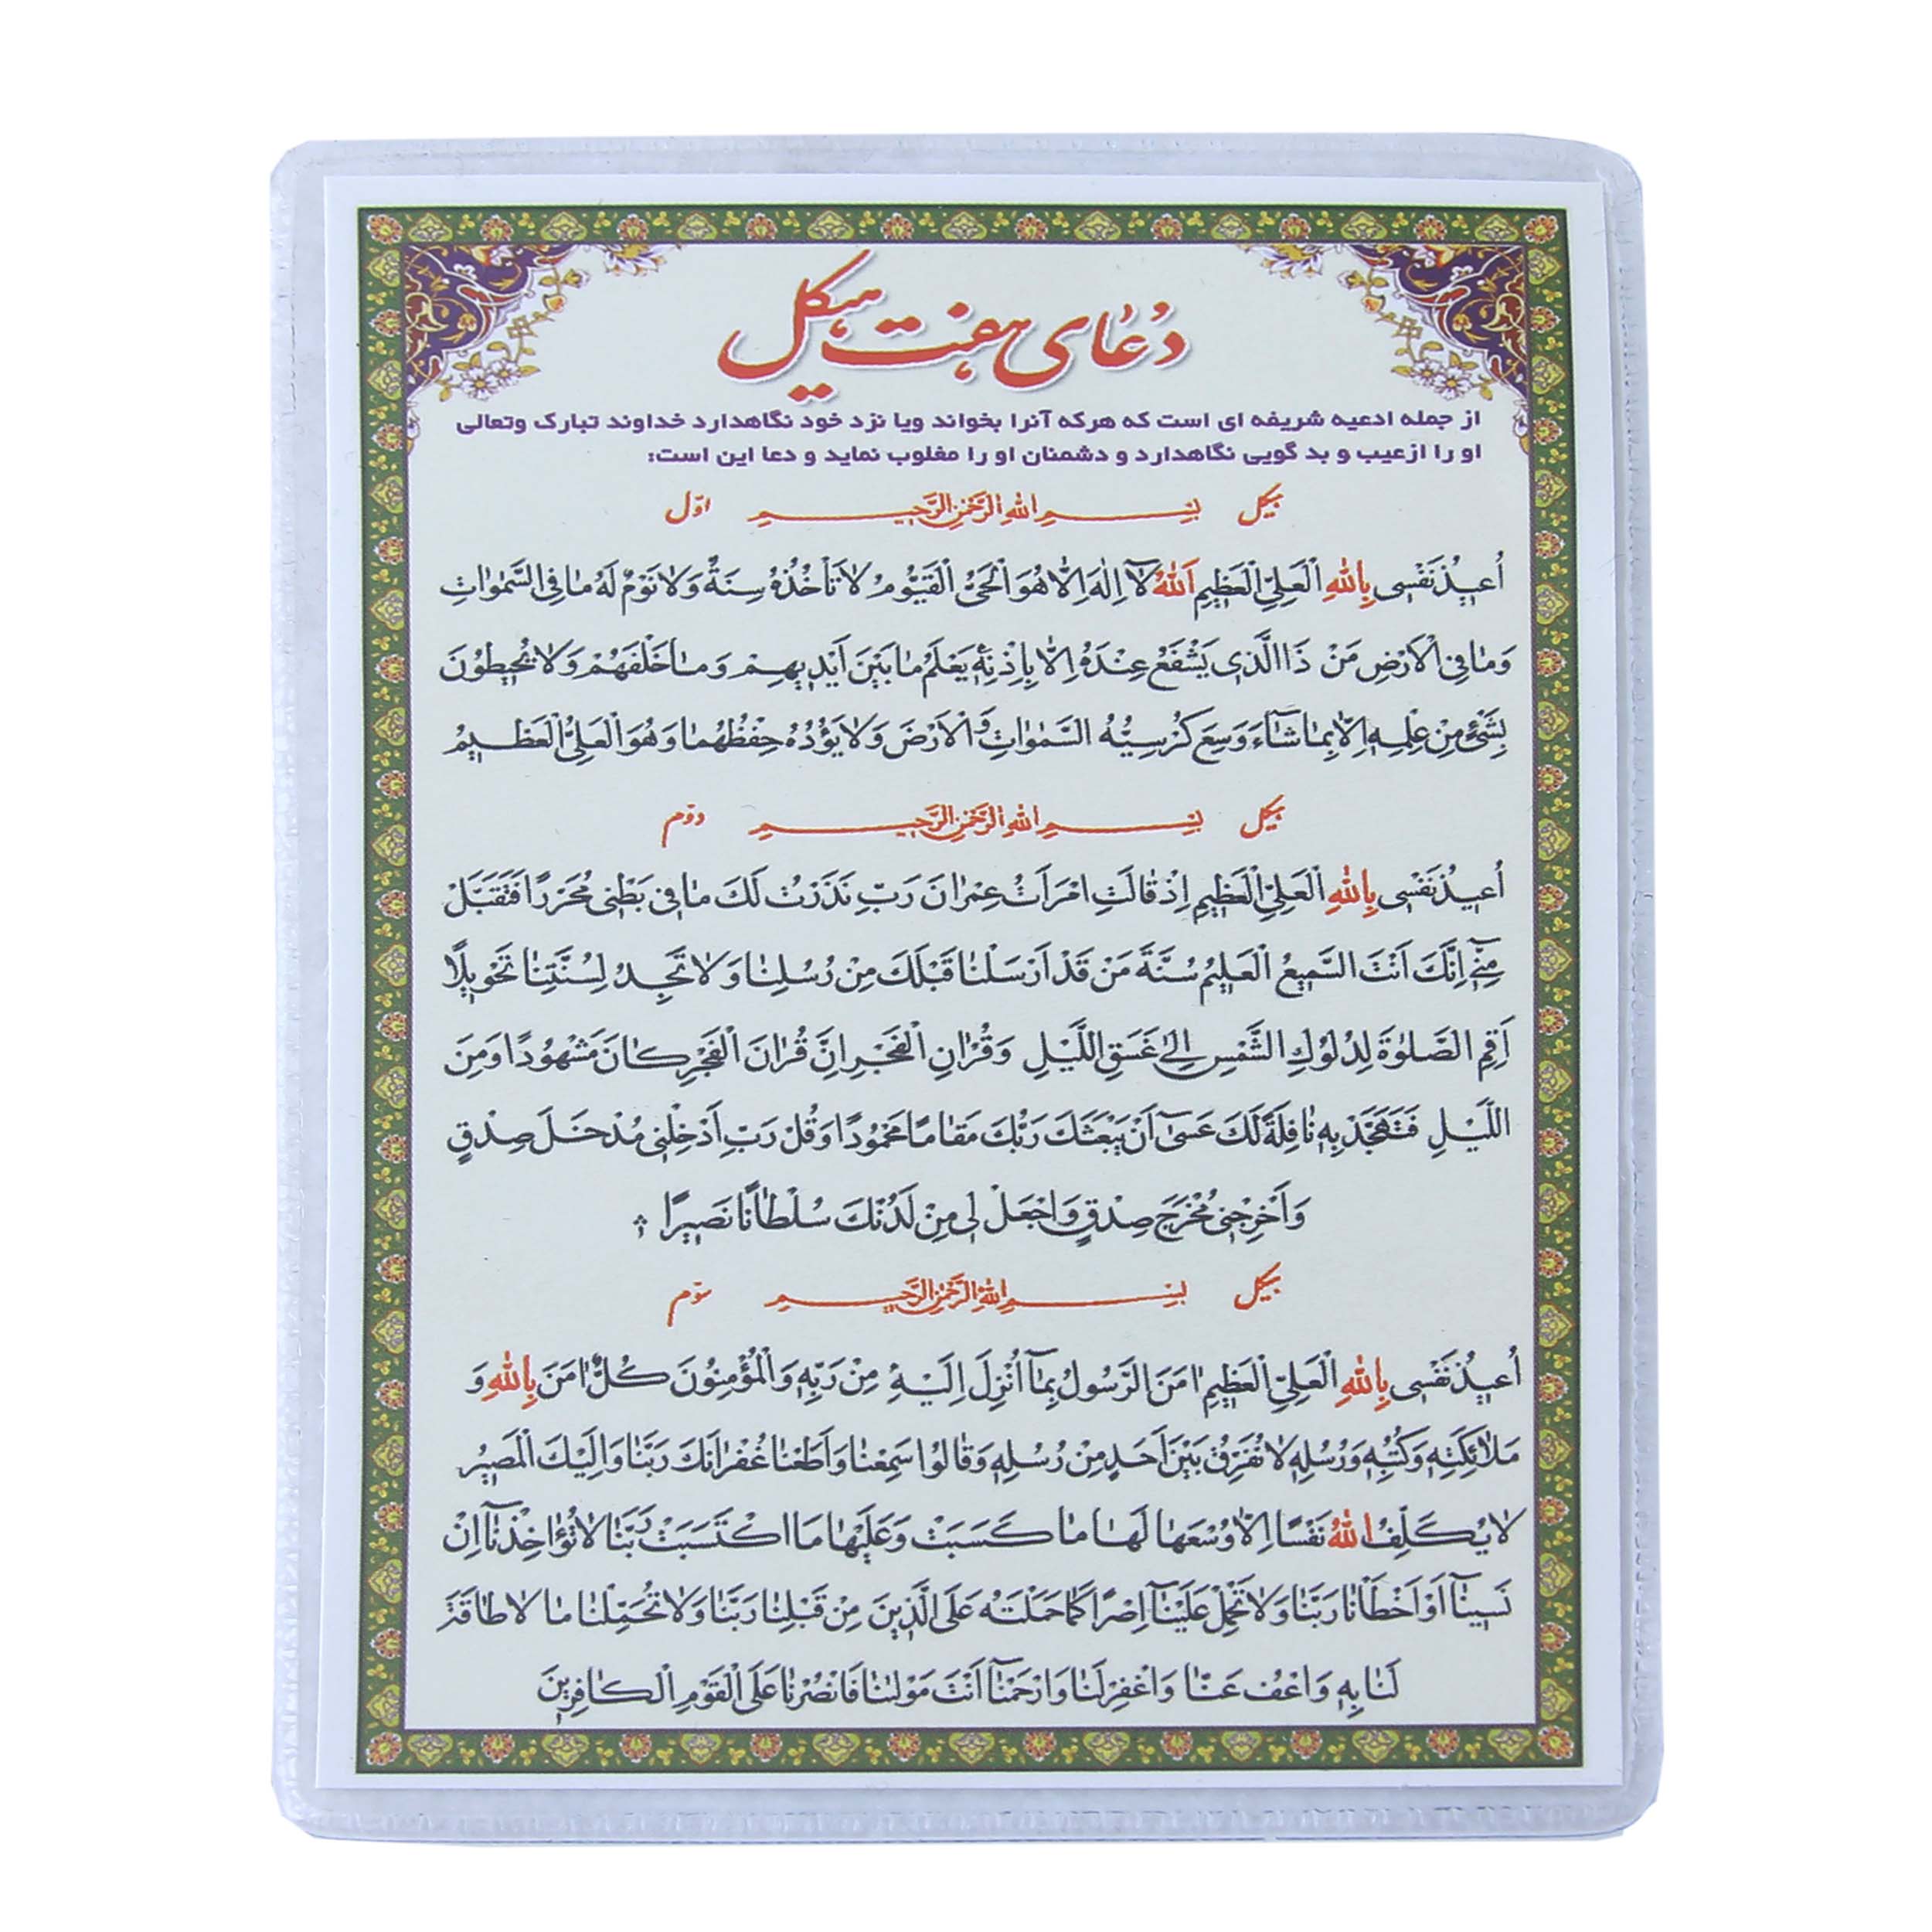 دُعای هفت هیکل
از جمله ادعیه شریفه ای است که هرکه آنرا بخواند ویا نزد خود نگاهدارد خداوند تبارک وتعالی
او را ازعیب و بد گویی نگاهدارد و دشمنان او را مغلوب نماید و دعا این است:
هیکل بِسْمِ اللهِ الرَّحْمٰنِ الرَّحِيمِ اوّل
اُعيذُ نَفْسى بِاللهِ الْعَلِىِّ الْعَظِيمِ اَللهُ لآ اِلٰهَ اِلاّٰ هُوَ الْحَىُّ الْقَيُّومُ لاٰ تَأْخُذُهُ سِنَةٌ وَ لاٰ نَوْمٌ لَهُ مٰا فِى السَّمٰوٰاتِ
وَ مٰا فِى الْاَرْضِ مَنْ ذَا الَّذى يَشْفَعُ عِنْدَهُ اِلاّٰ بِاِذْنِهِ يَعْلَمُ مٰا بَيْنَ اَيْديهِمْ وَ مٰا خَلْفَهُمْ وَ لاٰ يُحيطُونَ
بِشَىْءٍ مِنْ عِلْمِهِ اِلاّٰ بِمٰا شٰاءَ وَسِعَ كُرْسِيُّهُ السَّمٰوٰاتِ وَ الْاَرْضَ وَ لاٰ يَؤُدُهُ حِفْظُهُمٰا وَ هُوَ الْعَلِىُّ الْعَظيمُ
هیکل بِسْمِ اللهِ الرَّحْمٰنِ الرَّحِيمِ دوّم
اُعيذُ نَفْسى بِاللهِ الْعَلِىِّ الْعَظيمِ اِذْ قٰالَتِ امْرَاَتُ عِمْرٰانَ رَبِّ نَذَرْتُ لَكَ مٰا فى بَطْنى مُحَرَّرًا فَتَقَبَّلْ
مِنّى اِنَّكَ اَنْتَ السَّميعُ الْعَليمُ سُنَّةَ مَنْ قَدْ اَرْسَلْنٰا قَبْلَكَ مِنْ رُسُلِنٰا وَ لاٰ تَجِدُ لِسُنَّتِنٰا تَحْويلاً
اَقِمِ الصَّلوٰةَ لِدُلوُكِ الشَّمْسِ اِلىٰ غَسَقِ اللَّيْلِ وَ قُرْاٰنِ الْفَجْرِ اِنَّ قُرْاٰنَ الْفَجْرِ كٰانَ مَشْهُودًا وَ مِنَ
اللَّيْلِ فَتَهَجَّدْ بِهِ نٰافِلَةً لَكَ عَسىٰ اَنْ يَبْعَثَكَ رَبُّكَ مَقٰامًا مَحْمُودًا وَ قُلْ رَبِّ اَدْخِلْنى مُدْخَلَ صِدْقٍ
وَ اَخْرِجْنى مُخْرَجَ صِدْقٍ وَ اجْعَلْ لى مِنْ لَدُنْكَ سُلْطٰانًا نَصيرًا
هیکل بِسْمِ اللهِ الرَّحْمٰنِ الرَّحِيمِ سوّم
اُعيذُ نَفْسى بِاللهِ الْعَلِىِّ الْعَظيمِ اٰمَنَ الرَّسُولُ بِمٰا اُنْزِلَ اِلَيْهِ مِنْ رَبِّهِ وَ الْمُؤْمِنُونَ كُلٌّ اٰمَنَ بِاللهِ وَ
مَلاٰئِكَتِهِ وَ كُتُبِهِ وَ رُسُلِهِ لاٰ نُفَرِّقُ بَيْنَ اَحَدٍ مِنْ رُسُلِهِ وَ قٰالُوا سَمِعْنٰا وَ اَطَعْنٰا غُفْرٰانَكَ رَبَّنٰا وَ اِلَيْكَ الْمَصيرُ
لاٰ يُكَلِّفُ اللهُ نَفْسًا اِلاّٰ وُسْعَهٰا لَهٰا مٰا كَسَبَتْ وَ عَلَيْهٰا مَا اكْتَسَبَتْ رَبَّنٰا لاٰ تُؤٰاخِذْنٰا اِنْ
نَسينٰا اَوْ اَخْطَاْنٰا رَبَّنٰا وَ لاٰ تَحْمِلْ عَلَيْنٰا اِصْرًا كَمٰا حَمَلْتَهُ عَلَى الَّذينَ مِنْ قَبْلِنٰا رَبَّنٰا وَ لاٰ تُحَمِّلْنٰا مٰا لاٰ طٰاقَةَ
لَنٰا بِهِ وَ اعْفُ عَنّٰا وَ اغْفِرْ لَنٰا وَ ارْحَمْنٰا اَنْتَ مَوْلٰنٰا فَانْصُرْنٰا عَلَى الْقَوْمِ الْكٰافِرينَ